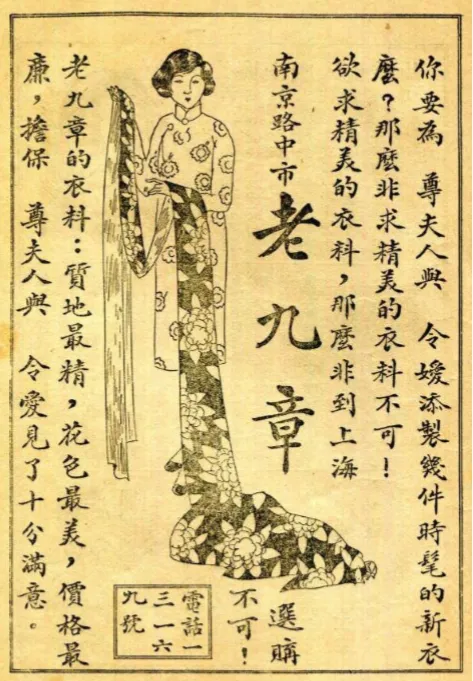 你要為 尊夫人與 令嬡添製幾件時髦的新衣
麼?那麼非求精美的衣料不可!
欲求精美的衣料,那麼非到上海
南京路中市
老九章
選購
不可!
電話一
三一六
九號
老九章的衣料:質地最精,花色最美,價格最
廉,擔保 尊夫人與 令愛見了十分滿意。